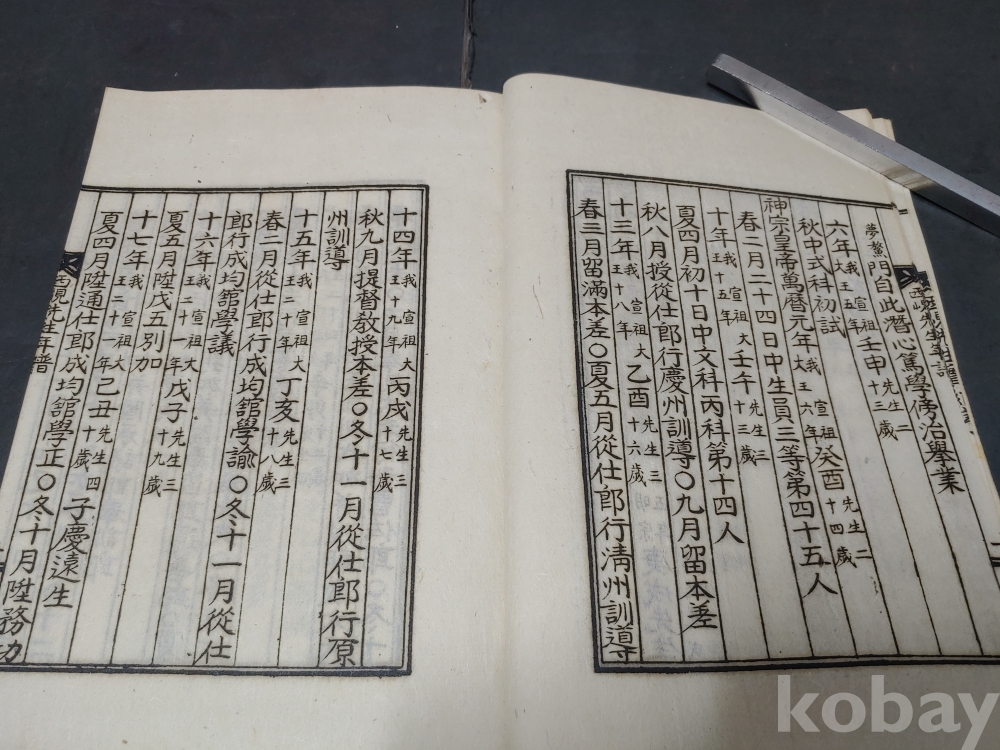 夢鰲門自此潛心篤學傍治舉業
六年我 宣祖大王五年壬申先生二十三歲
秋中式科初試
神宗皇帝萬曆元年我 宣祖大王六年癸酉先生二十四歲
春二月二十四日中生員三等第四十五人
十年我 宣祖大王十五年壬午先生三十三歲
夏四月初十日中文科丙科第十四人
秋八月授從仕郎行慶州訓導〇九月留本差
十三年我 宣祖大王十八年乙酉先生三十六歲
春三月留滿本差〇夏五月從仕郎行淸州訓導
十四年我 宣祖大王十九年丙戌先生三十七歲
秋九月提督敎授本差〇冬十一月從仕郎行原
州訓導
十五年我 宣祖大王二十年丁亥先生三十八歲
春二月從仕郎行成均舘學諭〇冬十一月從仕
郎行成均舘學議
十六年我 宣祖大王二十一年戊子先生三十九歲
夏五月陞戊五別加
十七年我 宣祖大王二十二年己丑先生四十歲 子慶遠生
夏四月陞通仕郎成均舘學正〇冬十月陞務功
先生年譜
kobay